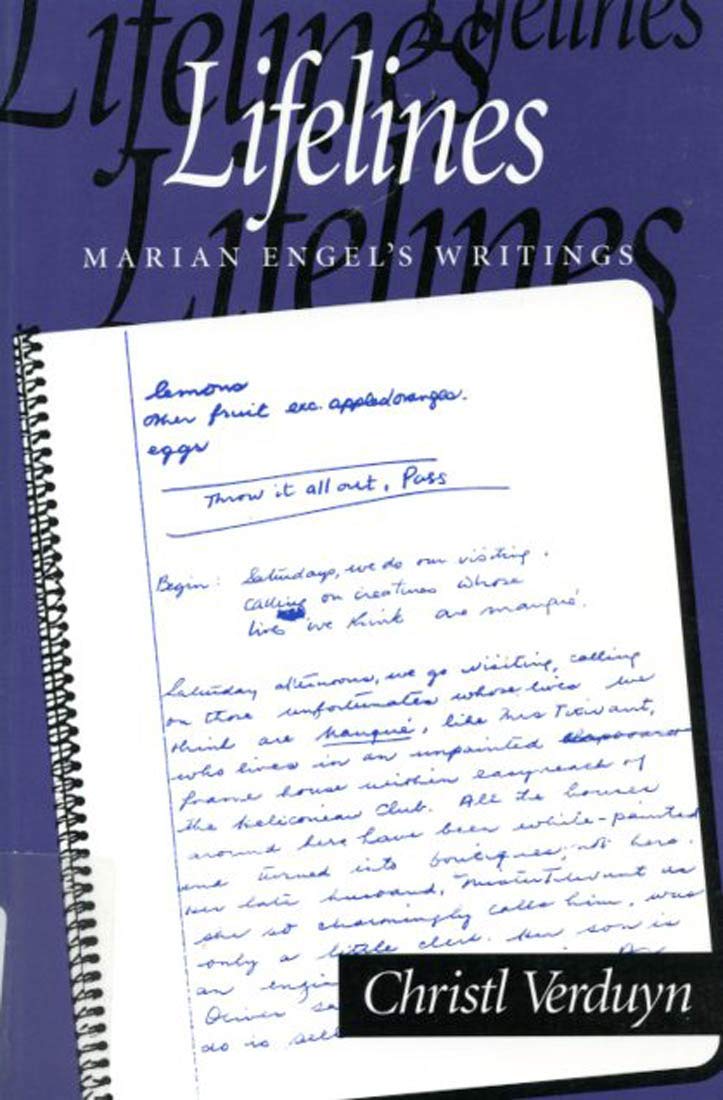 Lifelines
Lifelines
Lifelines
Lifelines
MARIAN ENGEL'S WRITINGS
lemons
other fruit exc. apples oranges.
eggs
Throw it all out, Pass
Begin: Saturdays, we do our visiting,
calling on creatures whose
lives we think are manqué.
Saturday afternoons, we go visiting, calling
on those unfortunates whose lives we
think are manqué, like Mrs
who lives in an unpainted
frame house within easy reach of
the Heliconian Club. All the houses
around hers have been white-painted
and turned into boutiques, not hers.
Her late husband, as
she so charmingly calls him, was
only a little clerk. Her son is
an
Oliver
do is sell
Christl Verduyn